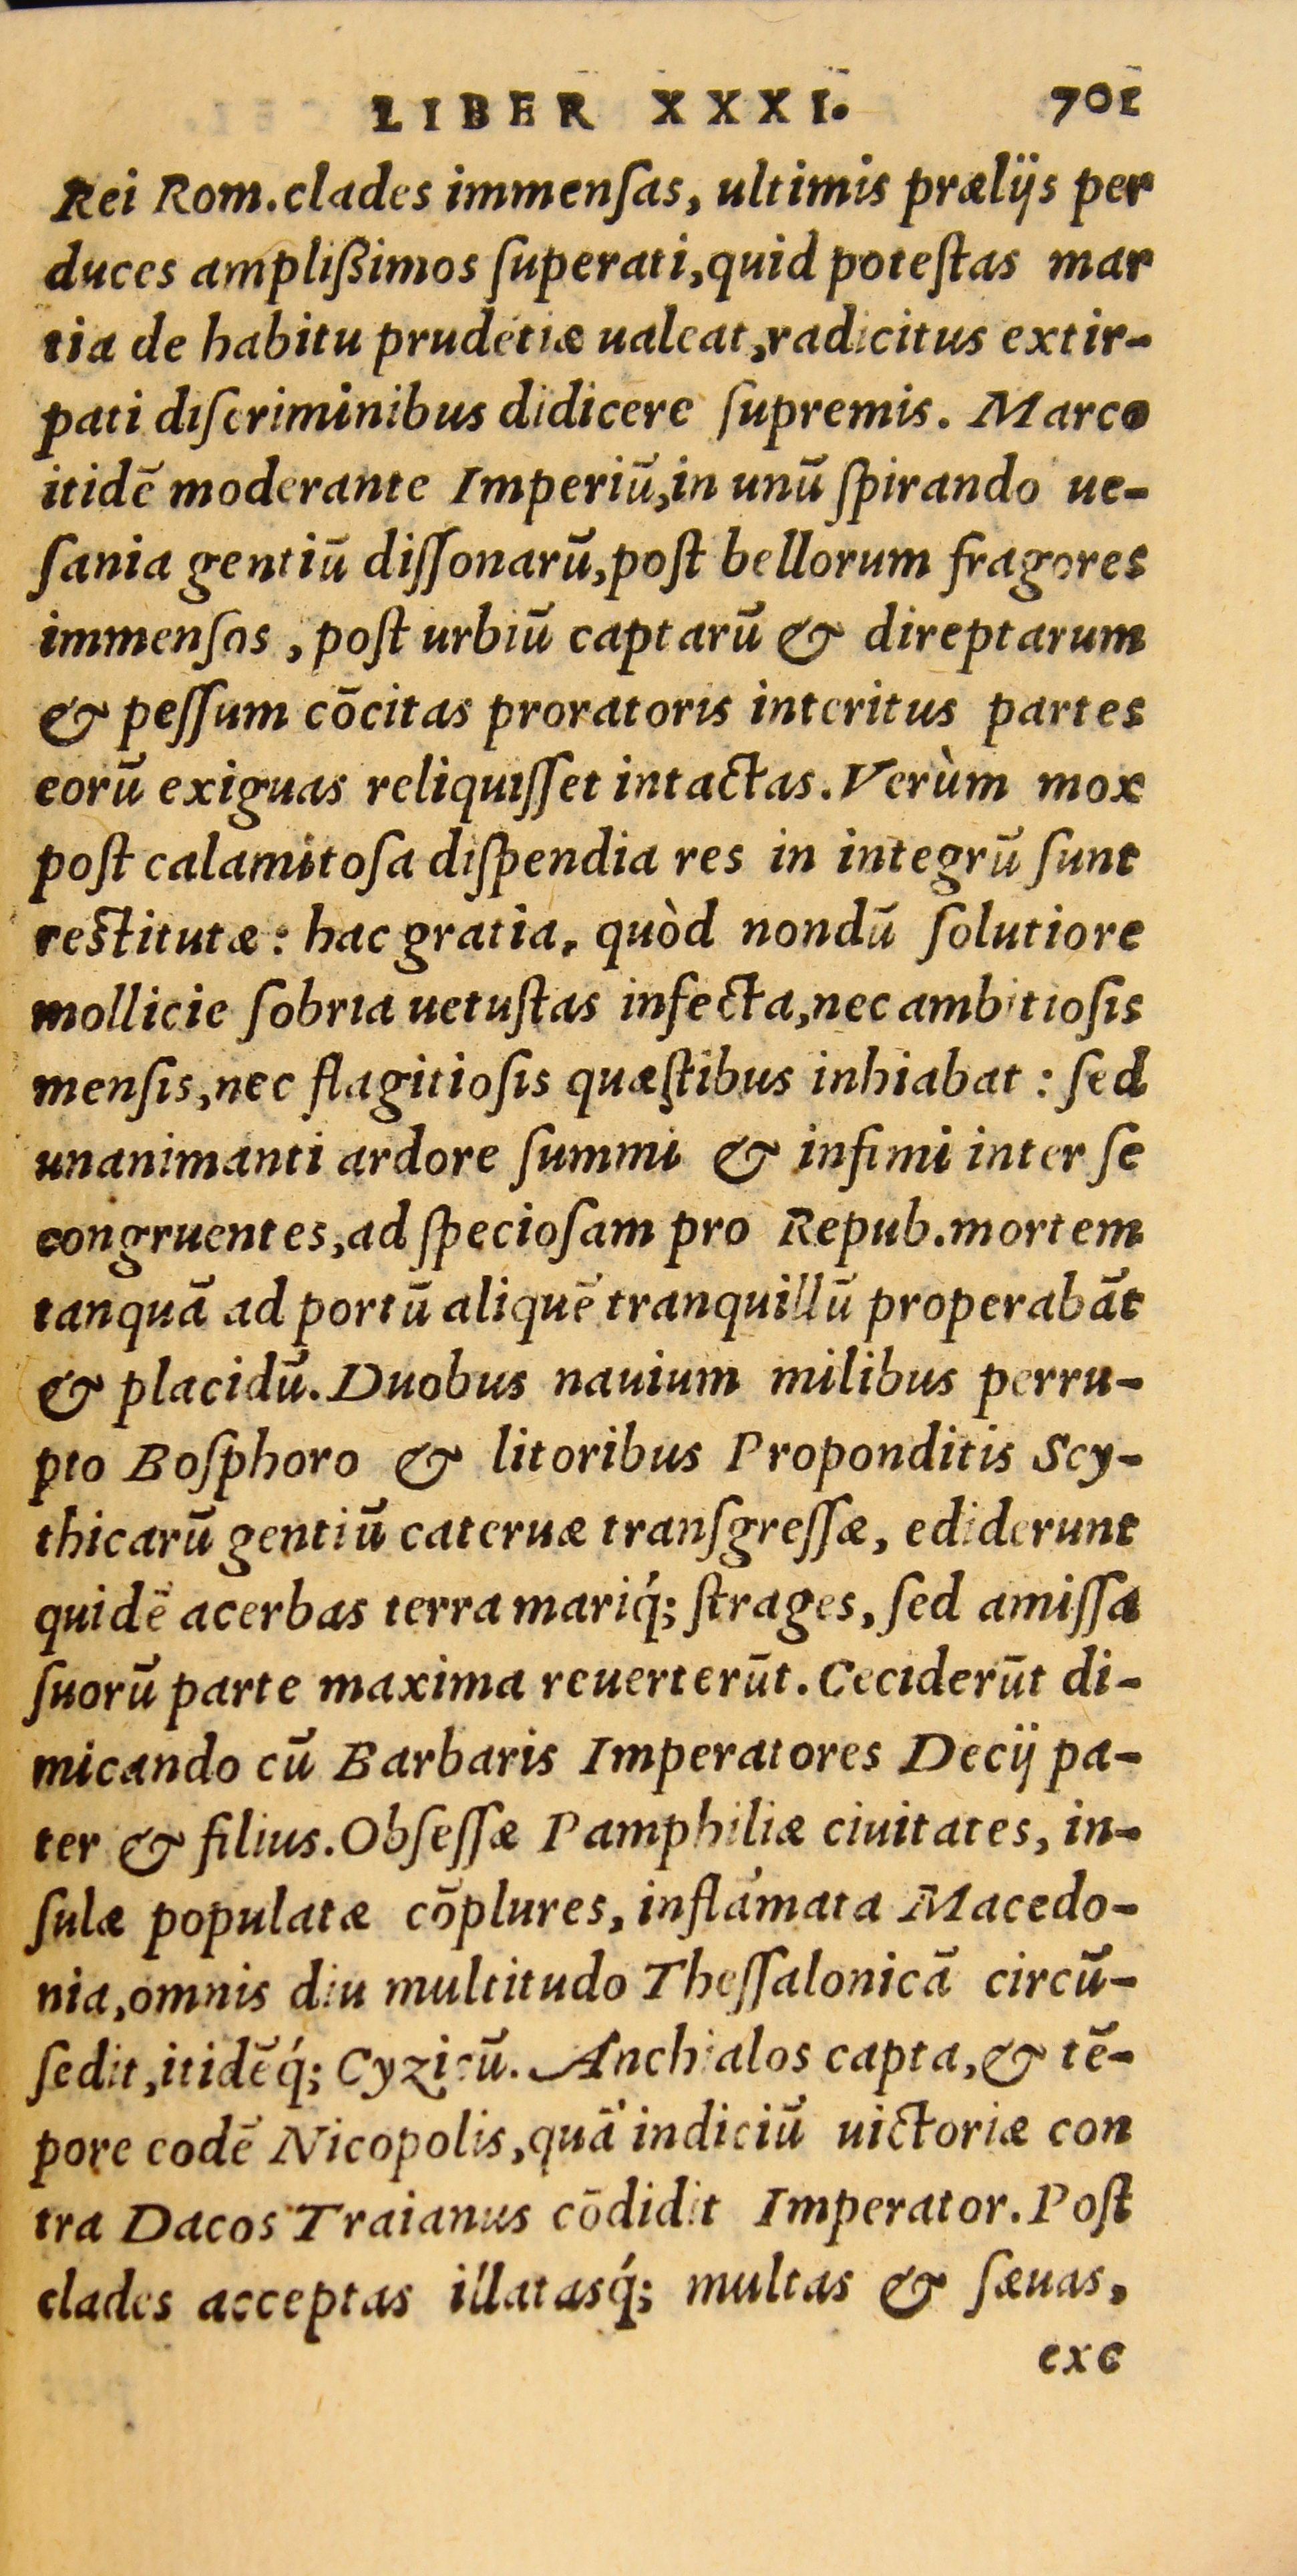 LIBER XXXI. 701
Rei Rom. clades immenſas, ultimis prælijs per
duces amplißimos ſuperati, quid poteſtas mar
tia de habitu prudētiæ ualeat, radicitus extir-
pati diſcriminibus didicere ſupremis. Marco
itidē moderante Imperiū, in unū ſpirando ue-
ſania gentiū diſſonarū, poſt bellorum fragores
immenſos, poſt urbiū captarū & direptarum
& peſſum cōcitas proratoris interitus partes
eorū exiguas reliquiſſet intactas. Verùm mox
poſt calamitoſa diſpendia res in integrū ſunt
reſtitutæ: hac gratia, quòd nondū ſolutiore
mollicie ſobria uetuſtas infecta, nec ambitioſis
menſis, nec flagitioſis quæſtibus inhiabat: ſed
unanimanti ardore ſummi & infimi inter ſe
congruentes, ad ſpecioſam pro Repub. mortem
tanquā ad portū aliquē tranquillū properabāt
& placidū. Duobus nauium milibus perru-
pto Boſphoro & litoribus Proponditis Scy-
thicarū gentiū cateruæ tranſgreſſæ, ediderunt
quidē acerbas terra mariq́; ſtrages, ſed amiſſa
ſuorū parte maxima reuerterūt. Ceciderūt di-
micando cū Barbaris Imperatores Decij pa-
ter & filius. Obſeſſæ Pamphiliæ ciuitates, in-
ſulæ populatæ cōplures, inflāmata Macedo-
nia, omnis diu multitudo Theſſalonicā circū-
ſedit, itidēq́; Cyzicū. Anchialos capta, & tē-
pore eodē Nicopolis, quā indiciū uictoriæ con
tra Dacos Traianus cōdidit Imperator. Poſt
clades acceptas illatasq́; multas & ſæuas,
exc